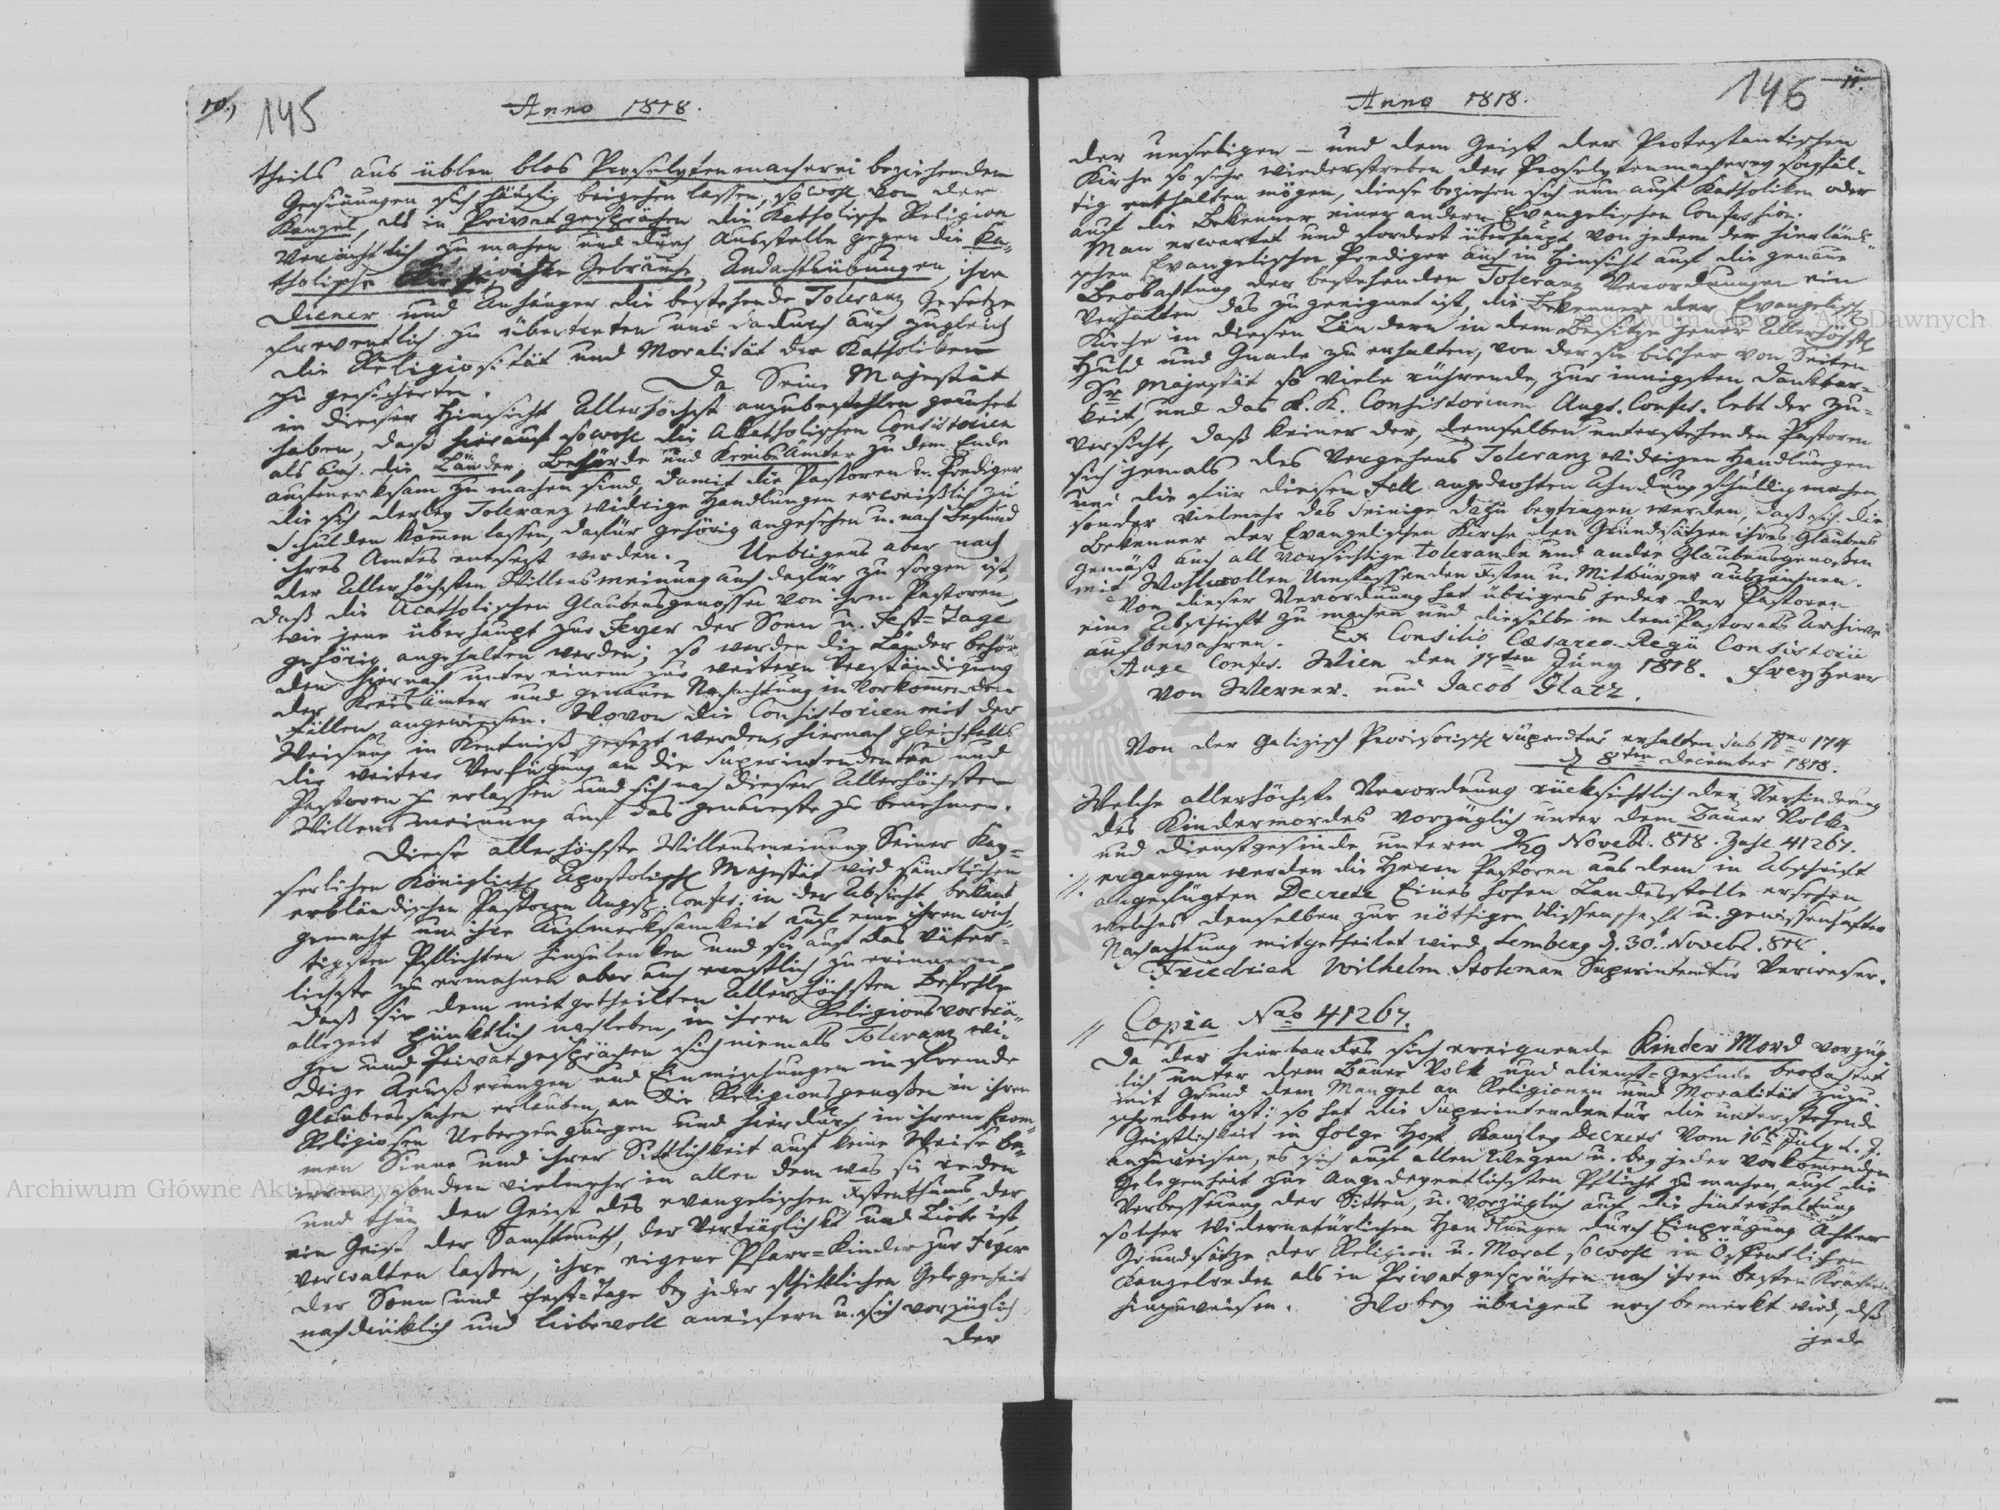 10.,
145
Anno 1818.
theils aus üblen blos Proselytenmacherei beziehenden
Gesinungen sich häufig beigehen lassen, sowohl von der
Kanzel, als in Privatgesprächen die Katholische Religion
verächtlich zu machen und durch Ausfälle gegen die Ka-
tholische Kirche, Gebräuche, Andachtsübungen, ihre
Diener und Anhänger die bestehende Toleranz Gesetze
freventlich zu übertreten und dadurch auch zugleich
die Religiosität und Moralität der Katholiken
zu
Da Seine Majestät
in dieser Hinsicht Allerhöchst anzubefehlen geruhet
haben, daß hierauf sowohl die Akatholischen Consistorien
als auch die Länder, Behörde und Kreisämter zu dem Ende
aufmerksam zu machen sind, damit die Pastoren u. Prediger
die sich derley Toleranz widrige Handlungen erweißlich zu
Schulden kommen lassen, dafür gehörig angesehen u. nach Befund
ihres Amtes entsezt werden. Uebrigens aber nach
der Allerhöchsten Willensmeinung auch dafür zu sorgen ist,
daß die Acatholischen Glaubensgenossen von ihren Pastoren,
wie jene überhaupt zur Feyer der Sonn u. Fest=Tage
gehörig angehalten werden; so werden die Länder behör-
den hiernach unter einem zur weitern Verständigung
der Kreisämter und genauen Nachachtung in vorkommenden
Fällen angewiesen. Wovon die Consistorien mit der
Weisung in Kentniß gesezt werden, hiernach gleichfalls
die weitere Verfügung an die Superintendenten und
Pastoren zu erlassen und sich nach dieser Allerhöchsten
Willensmeinung auf das genaueste zu benehmen.
Diese allerhöchste Willensmeinung Seiner Kay=
serlichen Königlich Apostolisch Majestät wird sämtlichen
erbländischen Pastoren Augsp. Confes. in der Absicht bekant
gemacht um ihre Aufmerksamkeit auf eine ihren wich-
tigsten Pflichten hinzulenken und sie auf das väter-
lichste zu ermahnen aber auch ernstlich zu erinnern,
daß sie dem mitgetheilten Allerhöchsten Befehle
allezeit pünktlich nachleben, in ihren Religionsvorträ-
gen und Privatgesprächen sich niemals Toleranz wi-
drige Aeußerungen und Einmischungen in fremde
Glaubenssachen erlauben, an die Religionsgenoßen in ihren
Religiösen Ueberzeugungen und hierdurch in ihrem from-
men Sinne und ihrer Sittlichkeit auf keine Weise be-
irren, sondern vielmehr in allen dem was sie reden
und thun den Geist des evangelischen Xstenthums, der
ein Geist der Sanftmuth, der Verträglichkt und Liebe ist
verwalten laßen, ihre eigene Pfarr=Kinder zur Feyer
der Sonn und Fest=Tage bey jeder schiklichen Gelegenheit
nachdrüklich und liebevoll aneifern u. sich vorzüglich
der
146
11.
Anno 1818.
der unseligen – und dem Geist der Protestantischen
Kirche so sehr wiederstreben der Proselytenmacherey sorgfäl-
tig enthalten mögen, diese beziehen sich nun auf Katholiken oder
auf die Bekenner einer andern Evangelischen Confession.
Man erwartet und fordert überhaupt von jedem der hierländi-
schen Evangelischen Prediger auch in Hinsicht auf die genaue
Beobachtung der bestehenden Toleranz Verordnungen ein
Verhalten das zu geeignet ist, die Bekenner der Evangelisch
Kirche in diesen Ländern in dem Besitze jener Allerhöchst
Huld und Gnade zu erhalten, von der sie bisher von Seiten
Sr Majestät so viele rührende, zur innigsten Dankbar-
keit, und das K. K. Consistorium Augs. Confes. lebt der Zu-
versicht, daß keiner der, demselben unterstehenden Pastoren
sich jemals des Vergehens Toleranz widrigen Handlungen
und die für diesen Fall angedrohten Ahndung schuldig machen,
sonder vielmehr das Seinige dazu beytragen werden, daß sich die
Bekenner der Evangelischen Kirche den Grundsätzen ihres Glaubens
gemäß auch als vorsichtige Tolerande und andre Glaubensgenoßen
mit Wohlwollen Umfassenden Xsten u. Mitbürger auszeichnen.
Von dieser Verordnung hat übrigens jeder der Pastoren
eine Abschrift zu machen und dieselbe in dem Pastorats Archive
aufbewahren. Ex Consilio Cæsareo-Regii Consistorii
Auge Confes. Wien den 17ten Juny 1818. Freyherr
von Werner. und Jacob Glatz.
Von der galizisch Provisorisch Superdtur erhalten sub Nro 174
d 8ten December 1818.
Welche allerhöchste Verordnung rücksichtlich der Verhinderung
des Kindermordes vorzüglich unter dem Bauer Volke
und Dienstgesinde unterm Novebr. 818. Zahl 41267.
ergangen werden die Herrn Pastoren aus dem in Abschrift
angefügten Decrete Eines hohen Landesstelle ersehen,
welches denselben zur nöthigen Wissenschaft u. gewissenhaften
Nachachtung mitgetheilet wird. Lemberg d. 30t Novebr. 818.
Friedrich Wilhelm Stokman Superintendtur Verweser.
Copia Nro 41267.
Da der hierlandes sich ereignende Kinder Mord vorzüg
lich unter dem Bauer Volk und dienst=gesinde beobachtet
mit Grund dem Mangel an Religionen und Moralität zuzu-
schreiben ist: so hat die Superintendentur die unterstehende
Geistlichkeit in Folge Hof Kanzley Decrets vom 16t July d. J.
anzuweisen, es sich auf allen Wegen u. bey jeder vorkommenden
Gelegenheit zur angelegentlichsten Pflicht zu machen auf die
Verbesserung der Sitten, u. vorzüglich auf die Hinterhaltung
solcher widernatürlichen Handlungen durch Einprägung ächter
Grundsätze der Religion u. Moral sowohl in Öffentlichen
Kanzelreden als in Privatgesprächen nach ihren besten Kräften
hinzuweisen. Wobey übrigens noch bemerkt wird, daß
jede
Archiwum Główne Akt Dawnych
Archiwum Główne Akt Dawnych